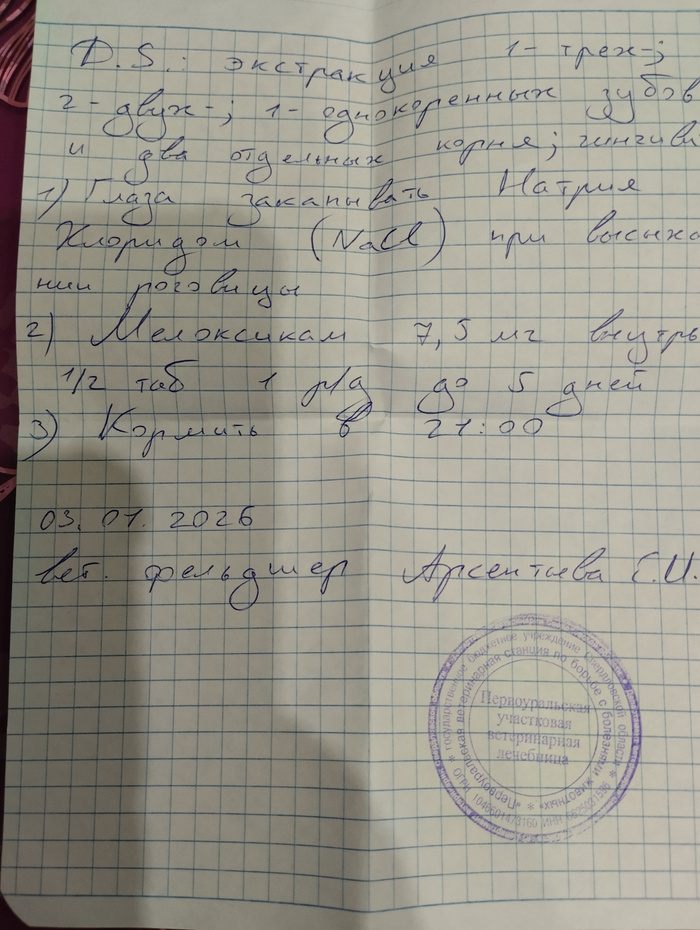 D.S.: экстракция 1-трех-;
2-двух-; 1-однокоренных зубов
и два отдельных корня; гингиви
1) Глаза закапывать Натрия
Хлоридом (NaCl) при высыха
нии роговицы
2) Мелоксикам 7,5 мг внутрь
1/2 таб 1 р/д до 5 дней
3) Кормить в 21:00
03.01.2026
вет. фельдшер Арсентьева Е.И.
государственное бюджетное учреждение Свердловской области
Первоуральская ветеринарная станция по борьбе с болезнями животных
ОГРН ИНН
Первоуральская
участковая
ветеринарная
лечебница